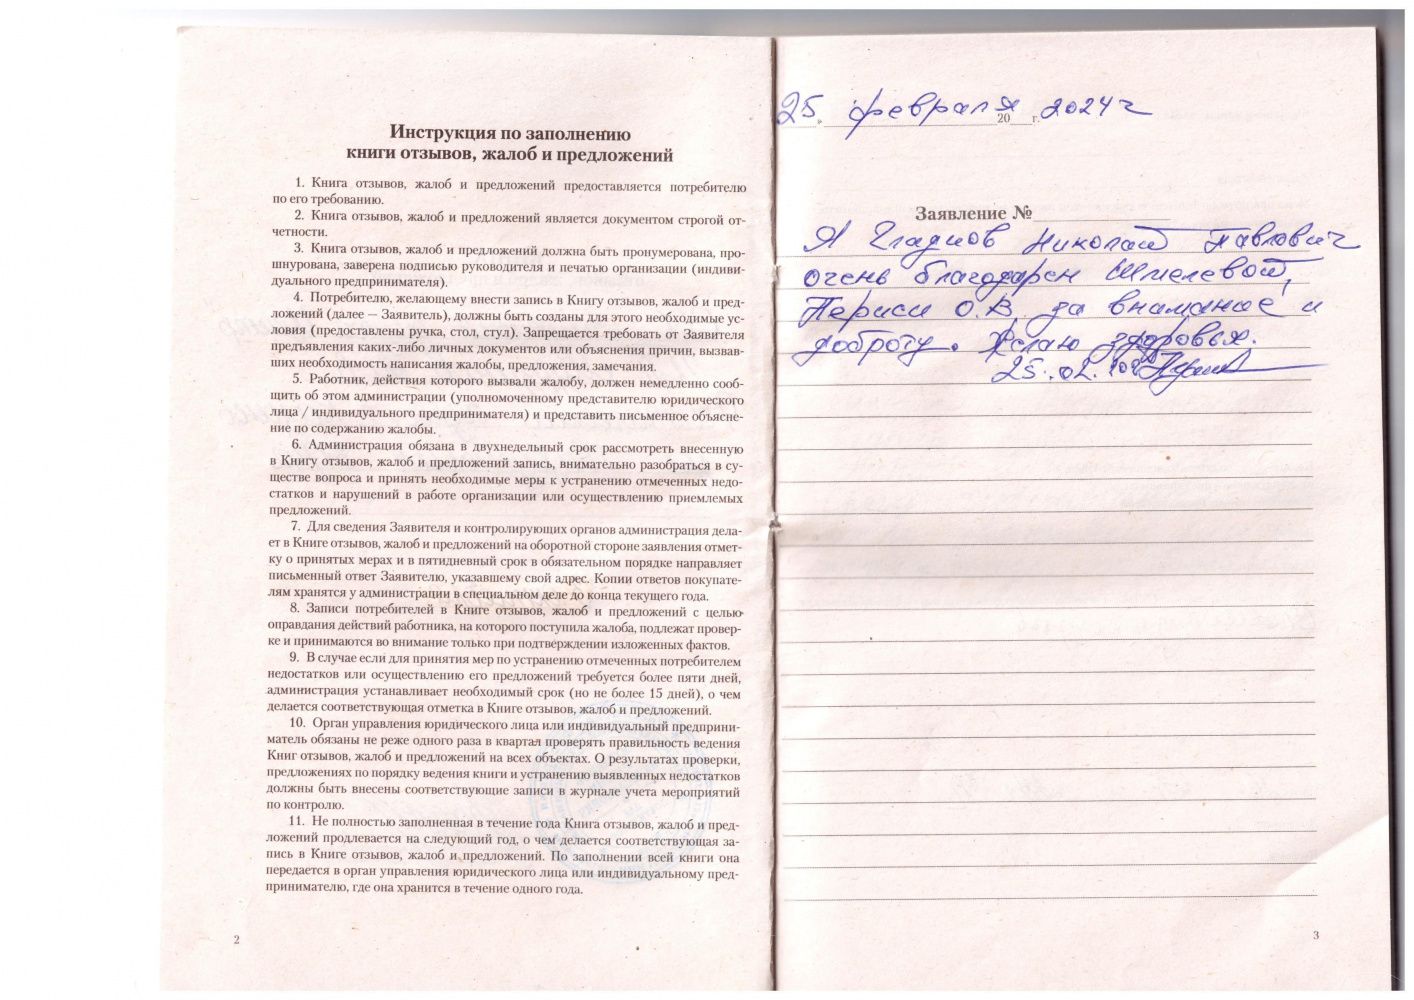 Инструкция по заполнению
книги отзывов, жалоб и предложений
1. Книга отзывов, жалоб и предложений предоставляется потребителю
по его требованию.
2. Книга отзывов, жалоб и предложений является документом строгой от-
четности.
3. Книга отзывов, жалоб и предложений должна быть пронумерована, про-
шнурована, заверена подписью руководителя и печатью организации (индиви-
дуального предпринимателя).
4. Потребителю, желающему внести запись в Книгу отзывов, жалоб и пред-
ложений (далее — Заявитель), должны быть созданы для этого необходимые ус-
ловия (предоставлены ручка, стол, стул). Запрещается требовать от Заявителя
предъявления каких-либо личных документов или объяснения причин, вызвав-
ших необходимость написания жалобы, предложения, замечания.
5. Работник, действия которого вызвали жалобу, должен немедленно сооб-
щить об этом администрации (уполномоченному представителю юридического
лица / индивидуального предпринимателя) и представить письменное объясне-
ние по содержанию жалобы.
6. Администрация обязана в двухнедельный срок рассмотреть внесенную
в Книгу отзывов, жалоб и предложений запись, внимательно разобраться в су-
ществе вопроса и принять необходимые меры к устранению отмеченных недо-
статков и нарушений в работе организации или осуществлению приемлемых
предложений.
7. Для сведения Заявителя и контролирующих органов администрация дела-
ет в Книге отзывов, жалоб и предложений на оборотной стороне заявления отмет-
ку о принятых мерах и в пятидневный срок в обязательном порядке направляет
письменный ответ Заявителю, указавшему свой адрес. Копии ответов покупате-
лям хранятся у администрации в специальном деле до конца текущего года.
8. Записи потребителей в Книге отзывов, жалоб и предложений с целью
оправдания действий работника, на которого поступила жалоба, подлежат провер-
ке и принимаются во внимание только при подтверждении изложенных фактов.
9. В случае если для принятия мер по устранению отмеченных потребителем
недостатков или осуществлению его предложений требуется более пяти дней,
администрация устанавливает необходимый срок (но не более 15 дней), о чем
делается соответствующая отметка в Книге отзывов, жалоб и предложений.
10. Орган управления юридического лица или индивидуальный предприни-
матель обязаны не реже одного раза в квартал проверять правильность ведения
Книг отзывов, жалоб и предложений на всех объектах. О результатах проверки,
предложениях по порядку ведения книги и устранению выявленных недостатков
должны быть внесены соответствующие записи в журнале учета мероприятий
по контролю.
11. Не полностью заполненная в течение года Книга отзывов, жалоб и пред-
ложений продлевается на следующий год, о чем делается соответствующая за-
пись в Книге отзывов, жалоб и предложений. По заполнении всей книги она
передается в орган управления юридического лица или индивидуальному пред-
принимателю, где она хранится в течение одного года.
2
25 февраля 20 г. 2024 г
Заявление №
Я Гладков Николай Павлович
очень благодарен Шмелевой,
О.В. за внимание и
доброту. Желаю здоровья.
25.02.
3